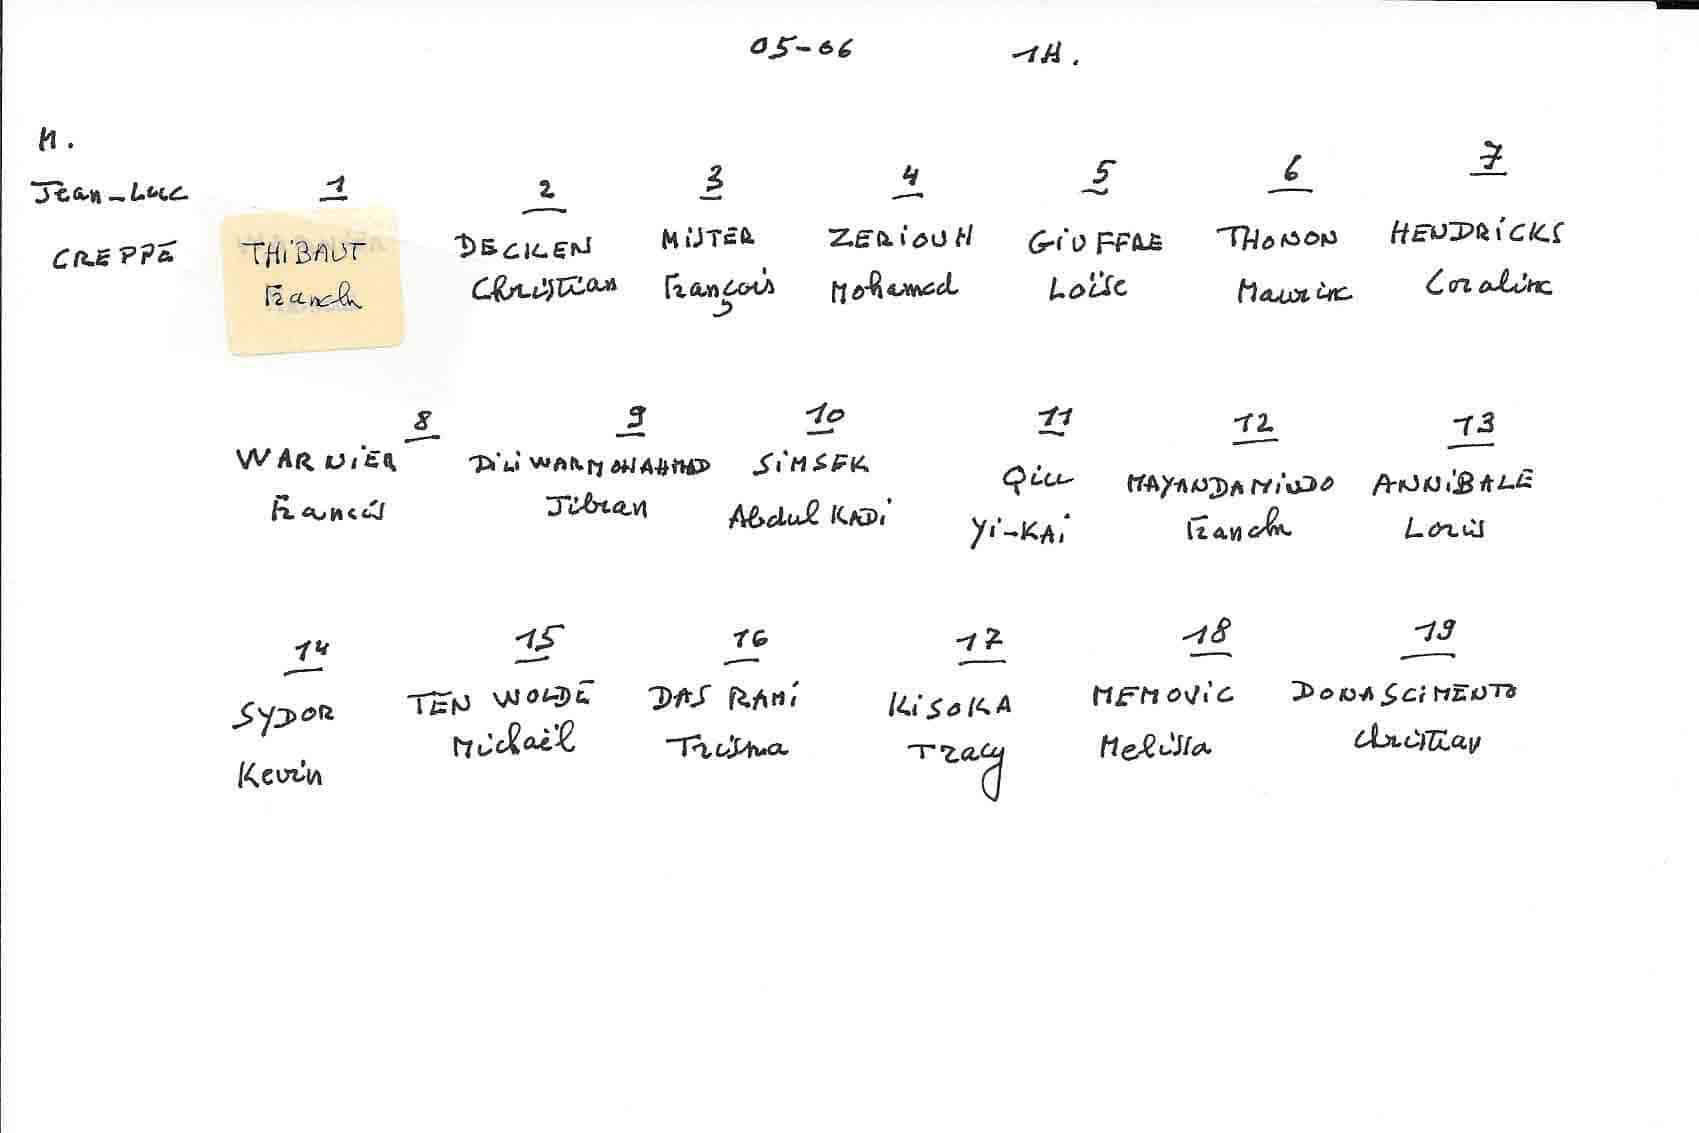 05-06 1H.
M.
Jean-Luc 1 2 3 4 5 6 7
CREPPÉ THIBAUT DECKEN MISTER ZERIOUH GIUFFRE THONON HENDRICKS
Franck Christian François Mohamed Loïse Maurine Coraline
8 9 10 11 12 13
WARNIER DILIWARMOHAHMAD SIMSEK Qiu MAYANDAMINDO ANNIBALE
Francis Jibran Abdul KADI Yi-KAI Franck Loris
14 15 16 17 18 19
SYDOR TEN WOLDE DAS RAMI KISOKA MEMOVIC DONASCIMENTO
Kevin Michaël Trisma Tracy Melissa Christian